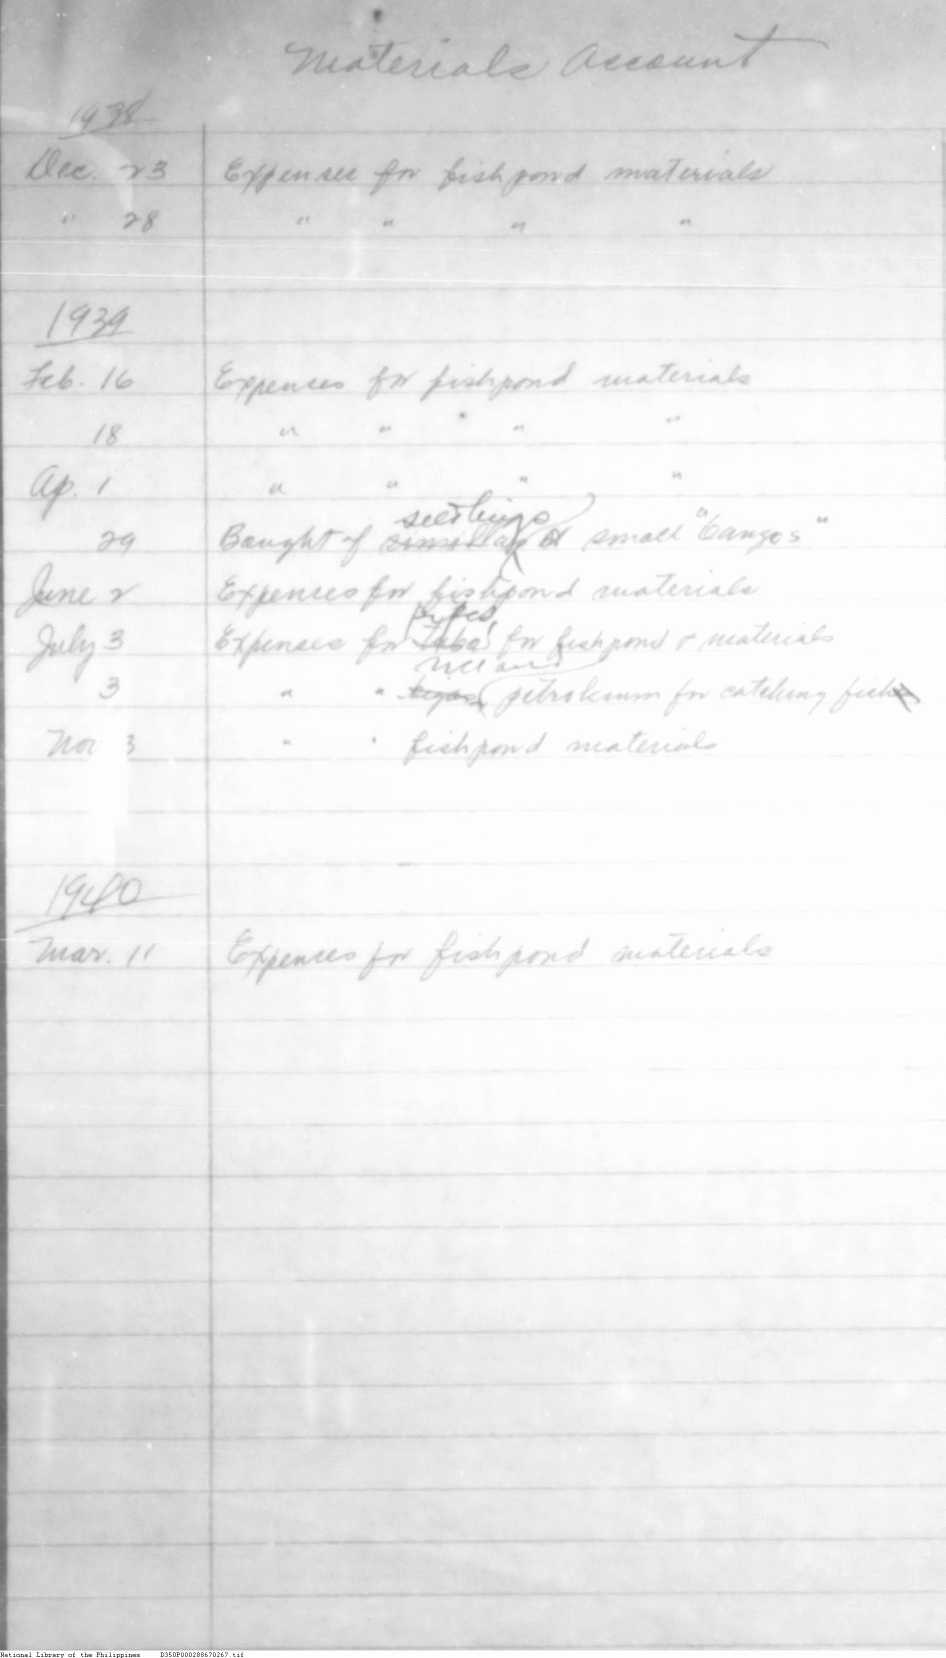 Materials Account
1938
Dec. 23 Expenses for fishpond materials
" 28 " " " "
1939
Feb. 16 Expenses for fishpond materials
18 " " " "
Ap. 1 " " " "
seedlings
29 Bought of small "bangos"
June 2 Expenses for fishpond materials
pipes,
July 3 Expenses for for fishpond & materials
rice and
3 " " petroleum for catching fish
Nov 3 " " fishpond materials
1940
Mar. 11 Expenses for fishpond materials
National Library of the Philippines D350P000288670267.tif